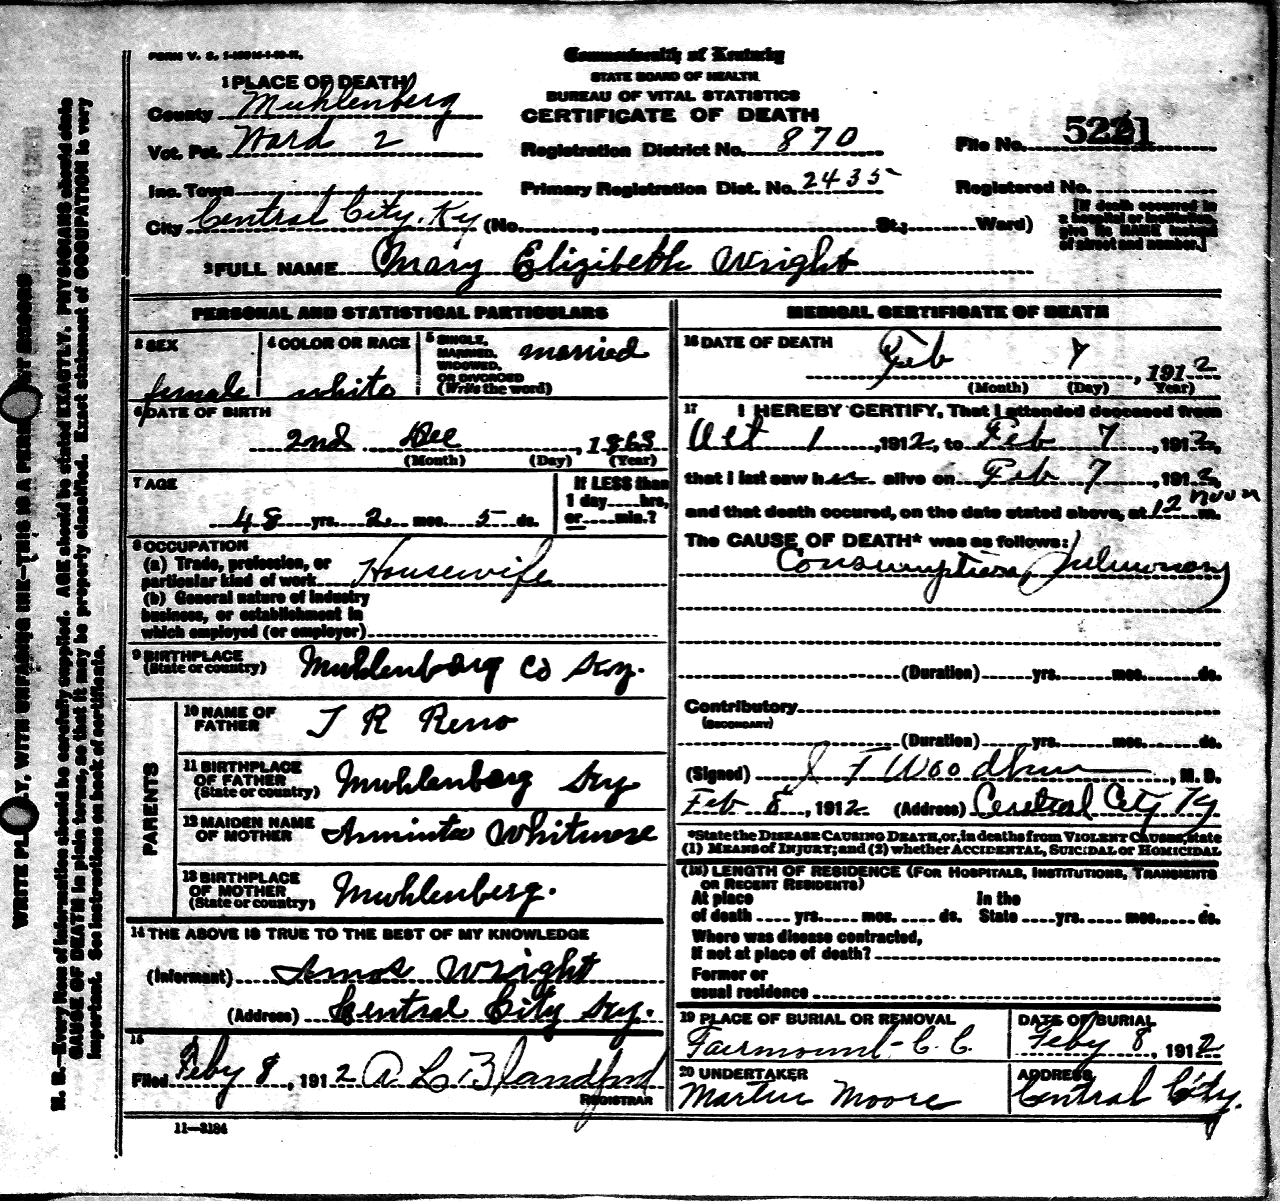 Commonwealth of Kentucky
STATE BOARD OF HEALTH
BUREAU OF VITAL STATISTICS
CERTIFICATE OF DEATH
1 PLACE OF DEATH
County Muhlenberg
Vot. Pct. Ward 2
Registration District No. 870
File No.
Inc. Town
Primary Registration Dist. No. 2435
Registered No.
City Central City, Ky (No. , St.; Ward)
[If death occurred in a hospital or institution, give its NAME instead of street and number.]
2 FULL NAME Mary Elizibeth Wright
PERSONAL AND STATISTICAL PARTICULARS
3 SEX
female
4 COLOR OR RACE
white
5 SINGLE, MARRIED, WIDOWED, OR DIVORCED (Write the word)
married
6 DATE OF BIRTH
2nd Dec , 1863
(Month) (Day) (Year)
7 AGE
48 yrs. 2 mos. 5 ds.
If LESS than 1 day hrs. or min.?
8 OCCUPATION
(a) Trade, profession, or particular kind of work Housewife
(b) General nature of industry business, or establishment in which employed (or employer)
9 BIRTHPLACE (State or country) Muhlenberg Co Ky.
PARENTS
10 NAME OF FATHER T R Reno
11 BIRTHPLACE OF FATHER (State or country) Muhlenberg Ky
12 MAIDEN NAME OF MOTHER Arminta Whitmore
13 BIRTHPLACE OF MOTHER (State or country) Muhlenberg.
14 THE ABOVE IS TRUE TO THE BEST OF MY KNOWLEDGE
(Informant) Amos Wright
(Address) Central City Ky.
15
Filed Feby 8, 1912 A L Blandford
REGISTRAR
11—3184
MEDICAL CERTIFICATE OF DEATH
16 DATE OF DEATH
Feb 7, 1912
(Month) (Day) (Year)
17 I HEREBY CERTIFY, That I attended deceased from
Oct 1, 1912, to Feb 7, 1912,
that I last saw her alive on Feb 7, 1912,
and that death occured, on the date stated above, at 12 noon m.
The CAUSE OF DEATH* was as follows:
Consumption, Pulmonary
(Duration) yrs. mos. ds.
Contributory
(SECONDARY)
(Duration) yrs. mos. ds.
(Signed) J T Woodburn, M. D.
Feb 8, 1912 (Address) Central City Ky
*State the DISEASE CAUSING DEATH, or, in deaths from VIOLENT CAUSES, state
(1) MEANS OF INJURY; and (2) whether ACCIDENTAL, SUICIDAL or HOMICIDAL
(18) LENGTH OF RESIDENCE (FOR HOSPITALS, INSTITUTIONS, TRANSIENTS
OR RECENT RESIDENTS)
At place of death yrs. mos. ds. In the State yrs. mos. ds.
Where was disease contracted,
If not at place of death?
Former or
usual residence
19 PLACE OF BURIAL OR REMOVAL
Fairmount - C. C.
DATE OF BURIAL
Feby 8, 1912
20 UNDERTAKER
Martin Moore
ADDRESS
Central City.
N. B.—Every item of information should be carefully supplied. AGE should be stated EXACTLY. PHYSICIANS should state
CAUSE OF DEATH in plain terms, so that it may be properly classified. Exact statement of OCCUPATION is very
important. See instructions on back of certificate.